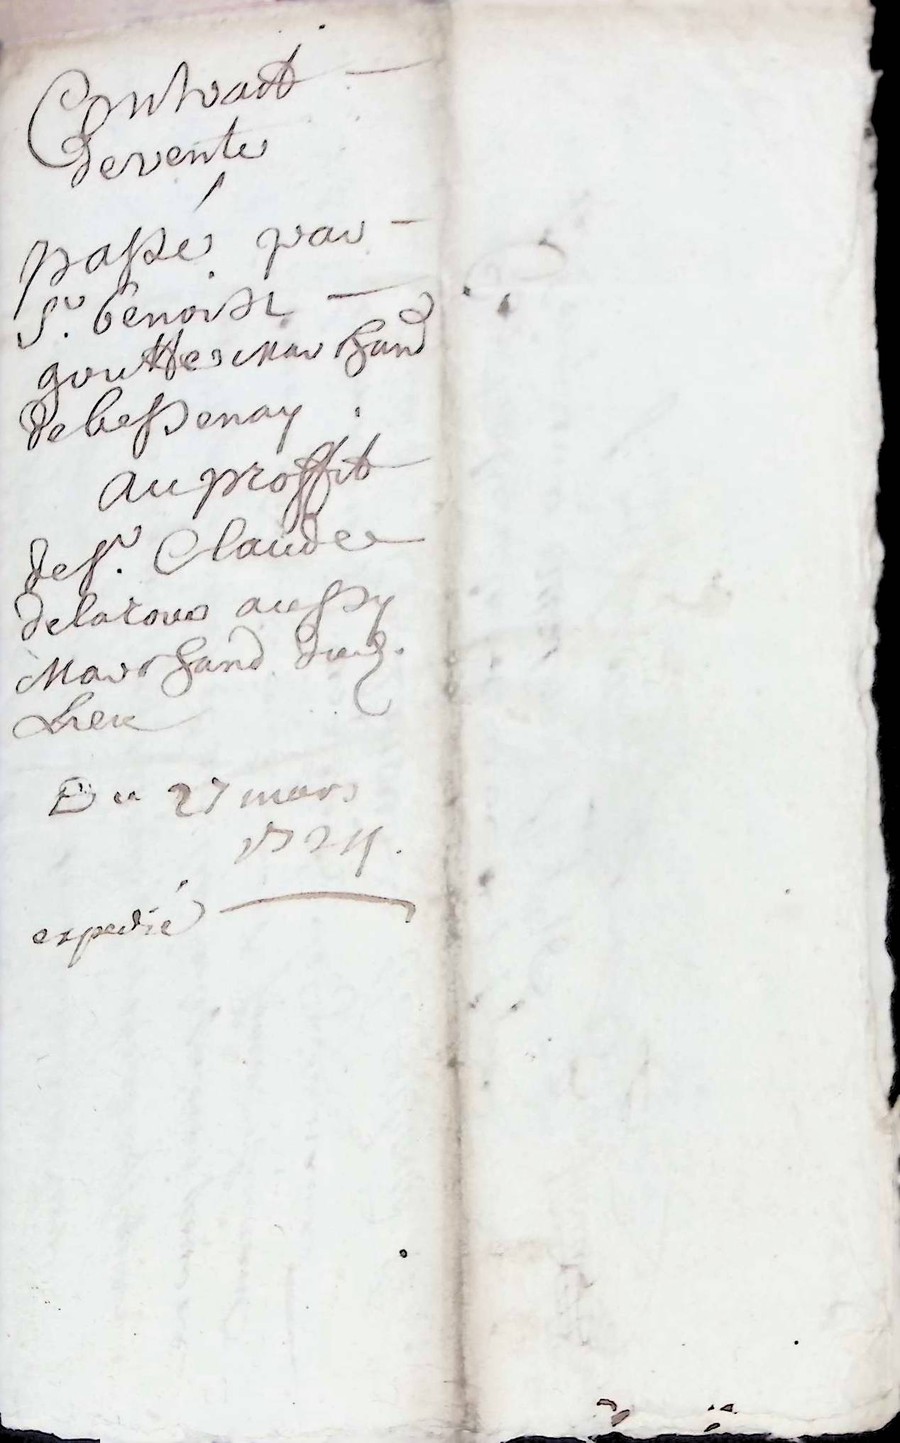 Contract
de vente
passé par
Sr. benoist
gouttes Marchand
de bessenay.
au proffit
de Sr. Claude
delaroue aussy
Marchand dud.
Lieu
Du 27 mars
1724.
expedié